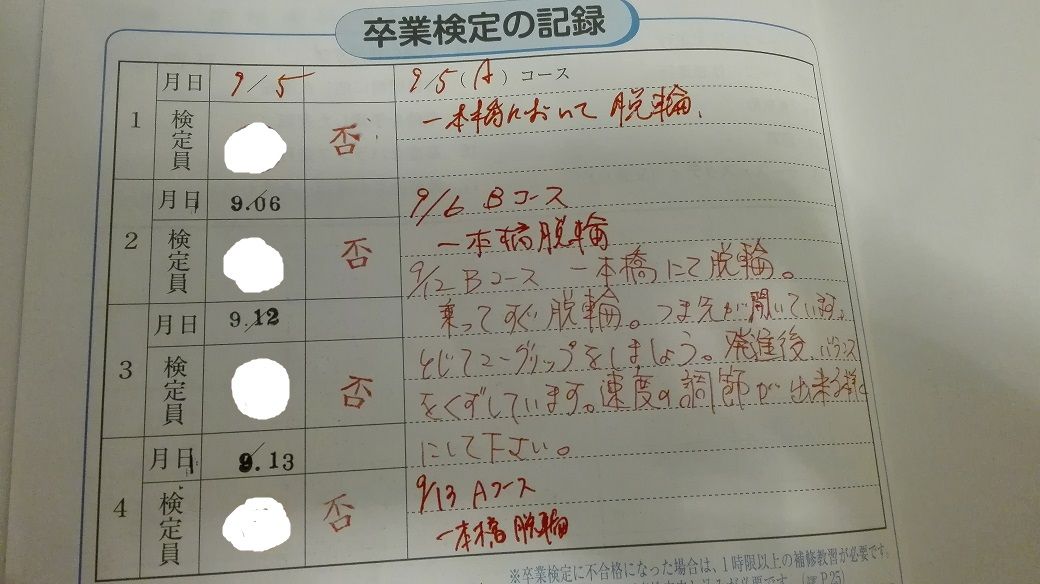 卒業検定の記録
1
月日
9/5
9/5(A)コース
検定員
否
一本橋において脱輪、
2
月日
9.06
9/6 Bコース
検定員
否
一本橋脱輪
9/12 Bコース 一本橋にて脱輪。
3
月日
9.12
乗ってすぐ脱輪。つま先が開いています。
検定員
否
とじてニーグリップをしましょう。発進後、バランス
をくずしています。速度の調節が出来る様に
にして下さい。
4
月日
9.13
9/13 Aコース
検定員
否
一本橋脱輪
※卒業検定に不合格になった場合は、1時限以上の補修教習が必要です。
P.25)